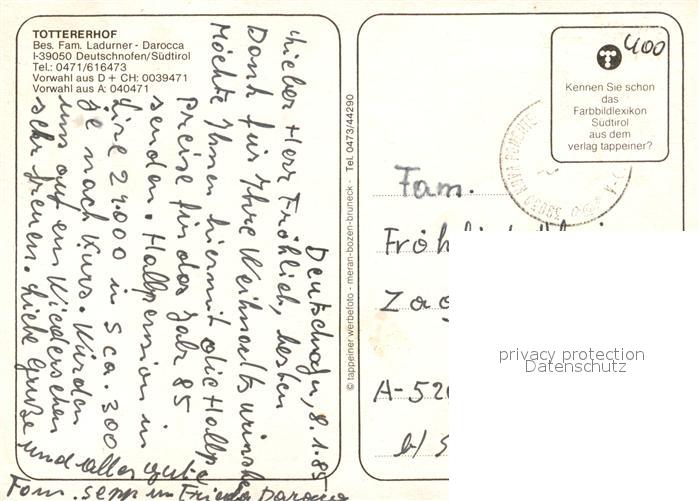 TOTTERERHOF
Bes. Fam. Ladurner - Darocca
I-39050 Deutschnofen/Südtirol
Tel.: 0471/616473
Vorwahl aus D + CH: 0039471
Vorwahl aus A: 040471
Deutschnofen, 8.1.85
Lieber Herr Fröhlich, besten
Dank für Ihre Weihnachtswünsche
Möchte Ihnen hiermit die Hallp
Preise für das Jahr 85
senden. Hallpension in
Lire 24000 in S ca. 300
je nach Kurs. Würden
uns auf ein Wiedersehen
sehr freuen. Liebe Grüße
und alles gute
Fam. Sepp un Frieda Darocca
© tappeiner werbefoto - meran-bozen-bruneck - Tel. 0473/44290
400
Kennen Sie schon
das
Farbbildlexikon
Südtirol
aus dem
verlag tappeiner?
39050
Fam.
Fröh
Zag
A-52
b/ S
privacy protection
Datenschutz